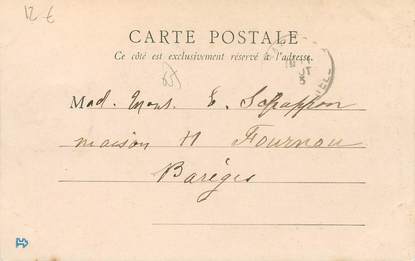 12 €
CARTE POSTALE
Ce côté est exclusivement réservé à l'adresse.
65
Mad. Mons. E.
maison H Fournou
Barèges